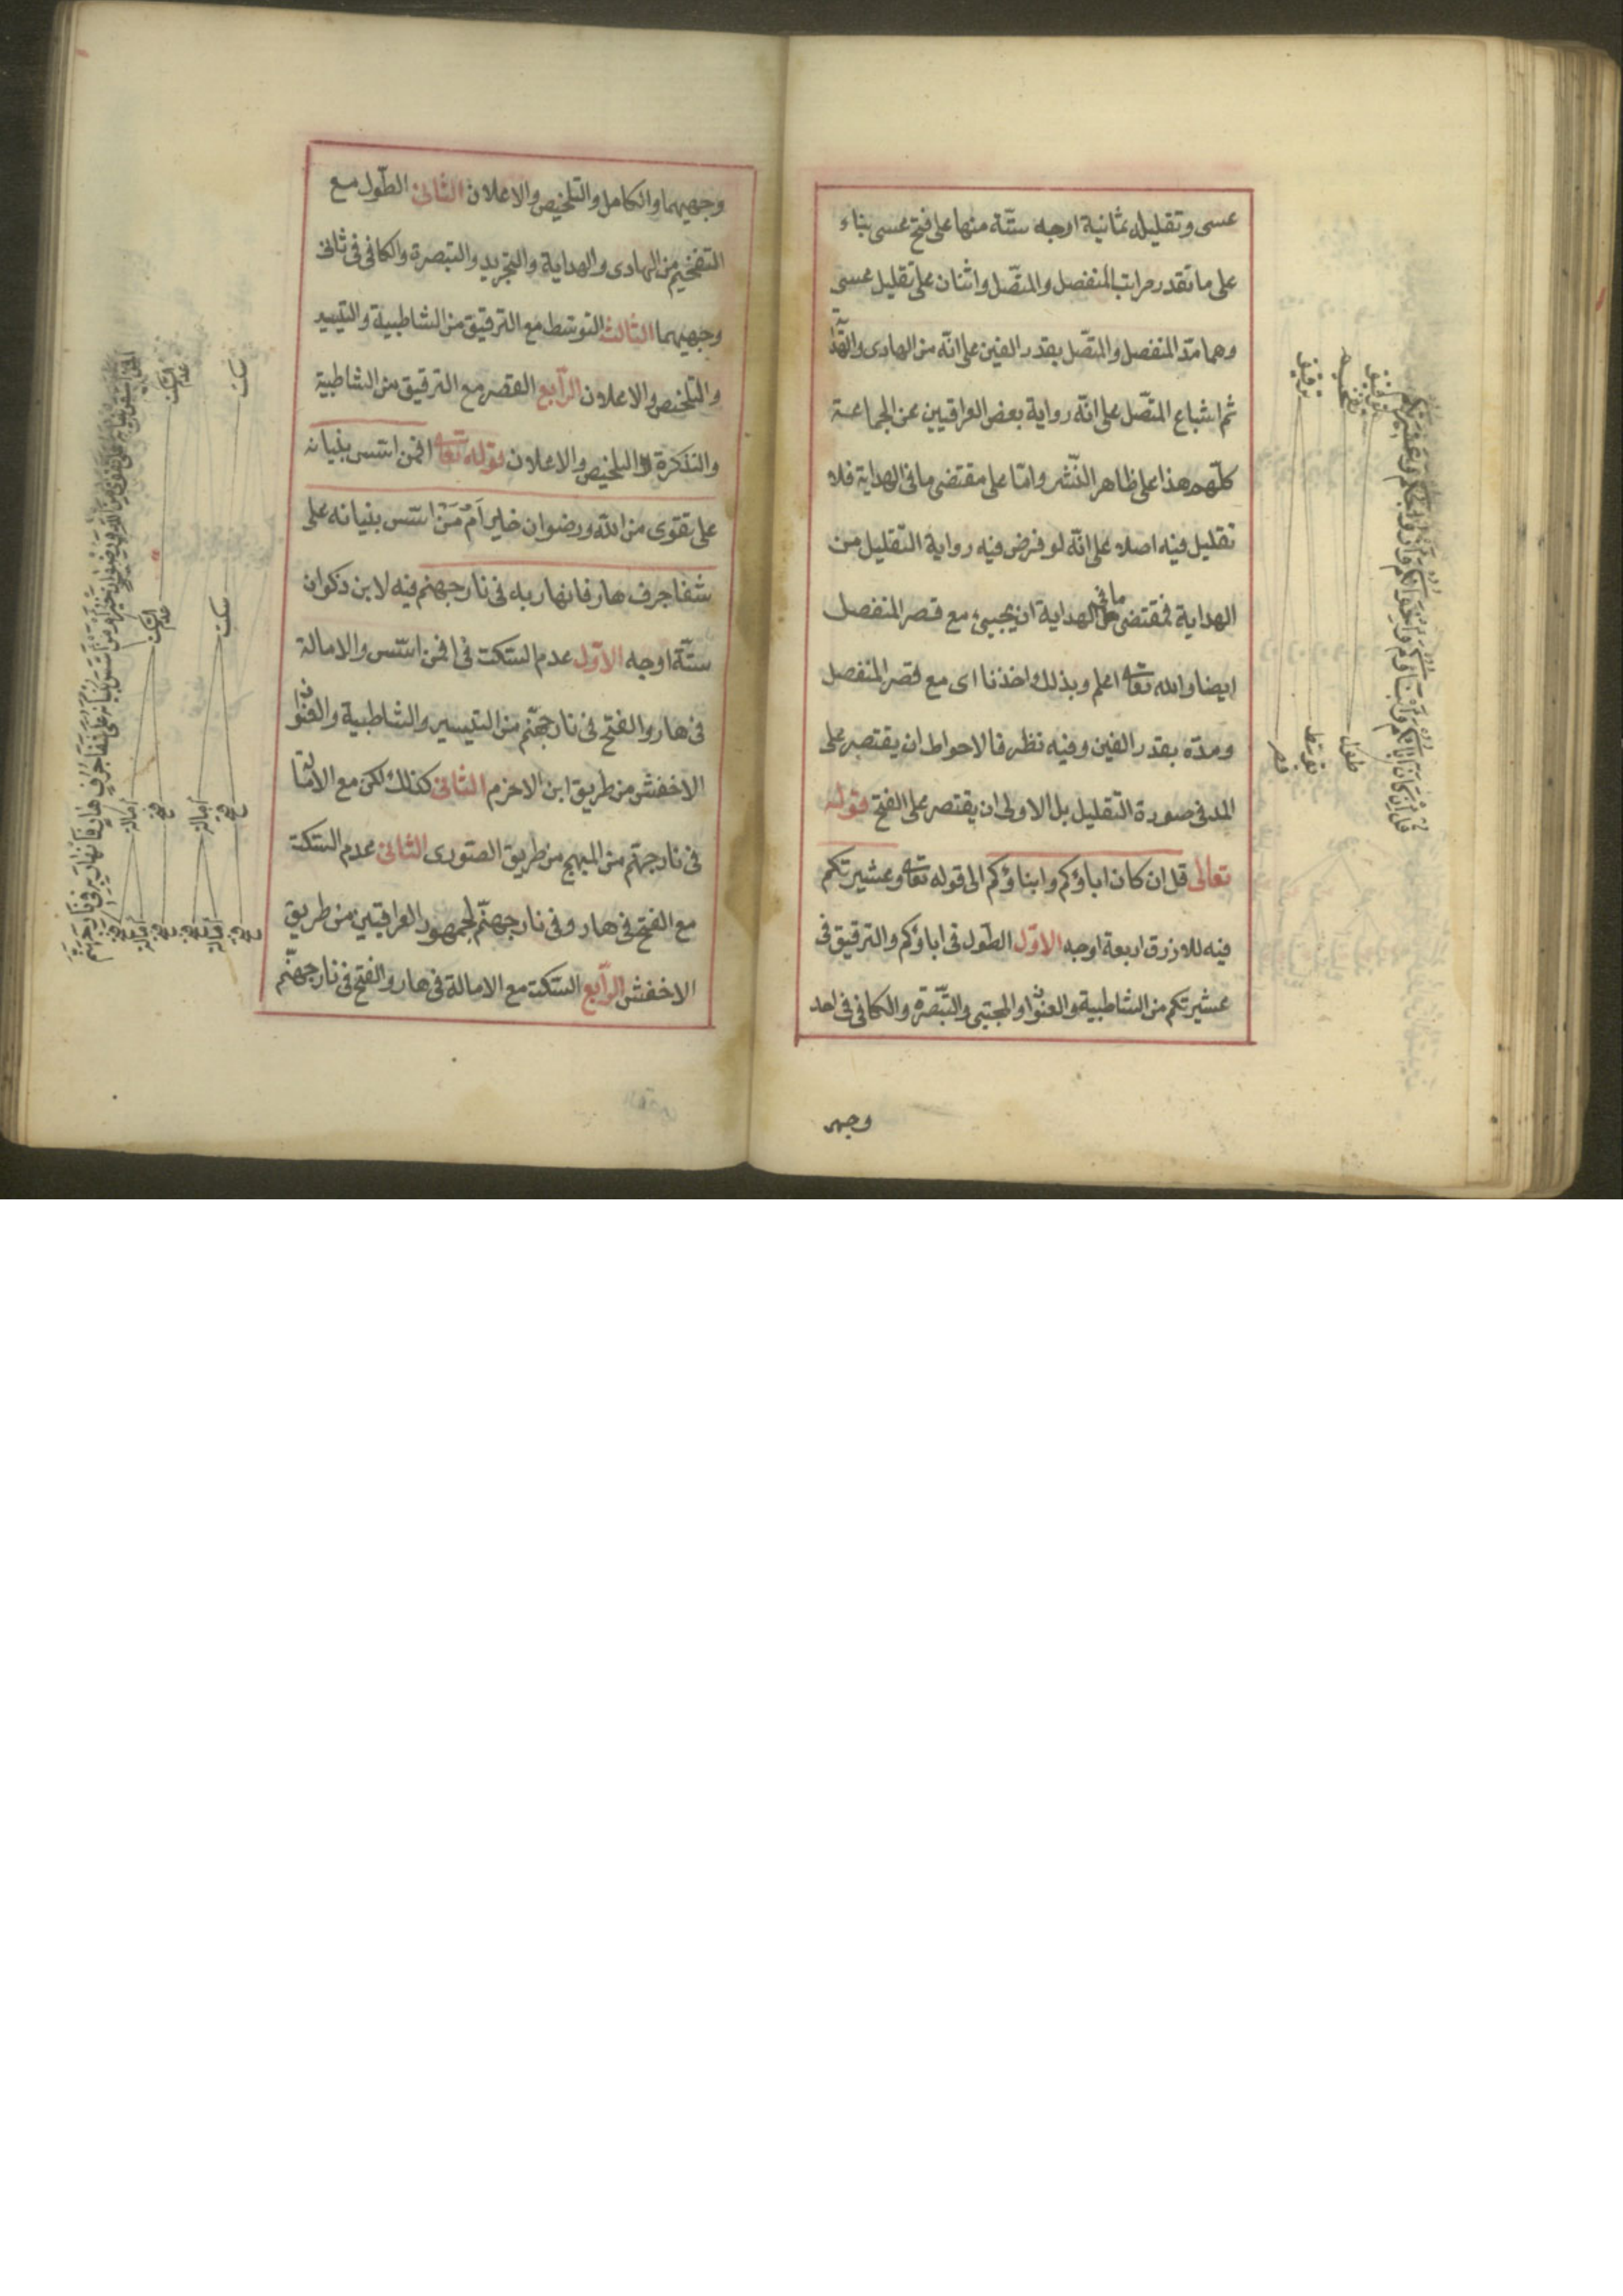 عسى وتقليله ثمانية اوجه ستّة منها على فتح عسى بناء
على ما تقدر مراتب المنفصل والمتّصل واثنان على تقليل عسى
وهما مدّ المنفصل والمتّصل بقدر الفين على انّه من الهادى
ثم اشباع المتّصل على انّه رواية بعض العراقيين عن الجماعة
كلّهم هذا على ظاهر النّشر وامّا على مقتضى ما فى الهداية فلا
تقليل فيه اصلا على انّه لو فرض فيه رواية التقليل من
الهداية فمقتضى ما فى الهداية ان يجيئ مع قصر المنفصل
ايضا والله تعالى اعلم وبذلك اخذنا اى مع قصر المنفصل
ومدّه بقدر الفين وفيه نظر فالاحوط ان يقتصر على
المد فى صورة التقليل بل الاولى ان يقتصر على الفتح قوله
تعالى قل ان كان اباؤكم وابناؤكم الى قوله تعالى وعشيرتكم
فيه للازرق اربعة اوجه الاوّل الطّول فى اباؤكم والترقيق فى
عشيرتكم من الشاطبية والعنوان والمجتبى والتّبصرة والكافى فى احد
وجهى
وجهيهما والكامل والتلخيص والاعلان الثانى الطّول مع
التفخيم من الهادى والهداية والتجريد والتبصرة والكافى فى ثانى
وجهيهما الثالث التوسّط مع الترقيق من الشاطبية والتيسير
والتلخيص والاعلان الرّابع القصر مع الترقيق من الشاطبية
والتذكرة والتلخيص والاعلان قوله تعالى افمن اسّس بنيانه
على تقوى من الله ورضوان خير اَمْ مَنْ اسّس بنيانه على
شفا جرف هار فانهار به فى نار جهنم فيه لابن ذكوان
ستّة اوجه الاوّل عدم السّكت فى افمن اسّس والامالة
فى هار والفتح فى نار جهنّم من التيسير والشاطبية والعنوان
الاخفش من طريق ابن الاخرم الثانى كذلك لكن مع الامالة
فى نار جهنّم من المبهج من طريق الصّورى الثالث عدم السّكت
مع الفتح فى هار وفى نار جهنّم لجمهور العراقيّين من طريق
الاخفش الرّابع السّكت مع الامالة فى هار والفتح فى نار جهنّم
قل ان كان اباؤكم وابناؤكم واخوانكم وازواجكم وعشيرتكم
ترقيق
تفخيم
ترقيق
طول
توسط
قصر
سكت
عدم السكت
سكت
عدم السكت
فتح
امالة
فتح
امالة